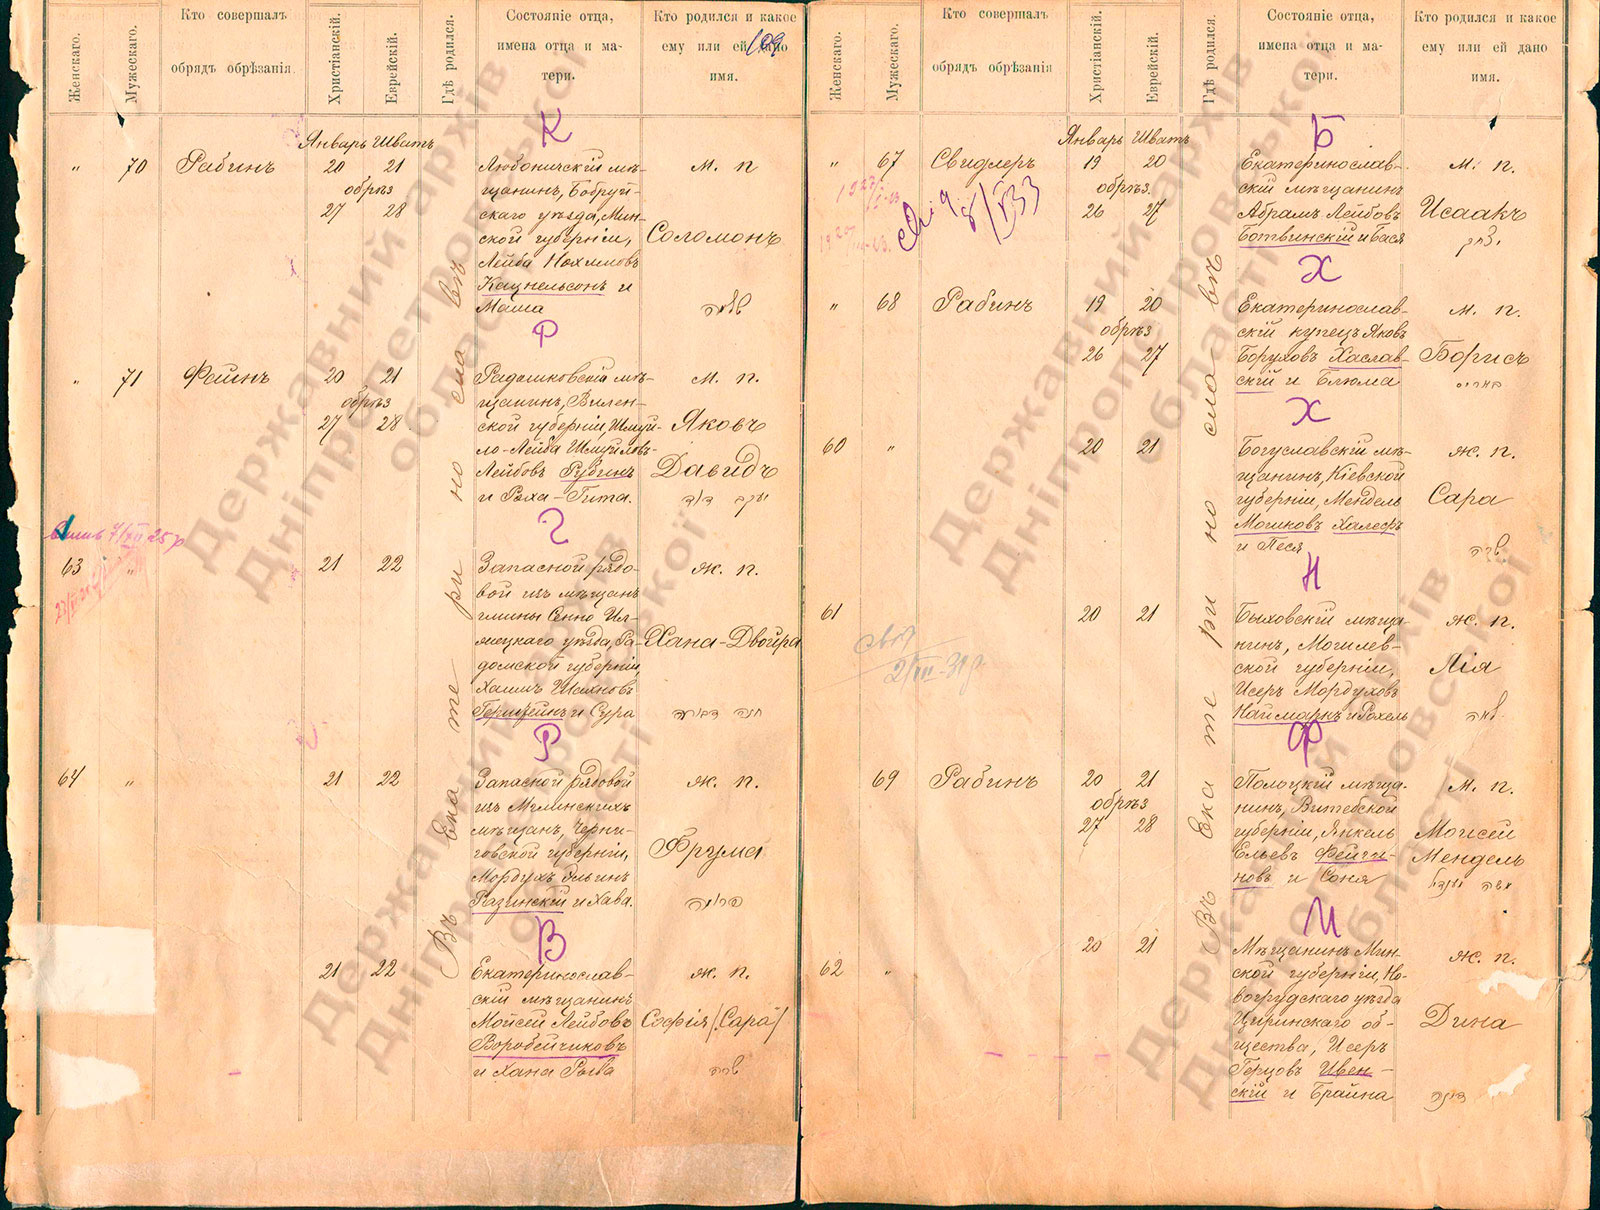 Женскаго.
Мужескаго.
Кто совершалъ
обрядъ обрѣзанія.
Христіанскій.
Еврейскій.
Гдѣ родился.
Состояніе отца,
имена отца и ма-
тери.
Кто родился и какое
ему или ей дано
имя.
109
К
Январь Шватъ
" 70 Рабинъ 20 21
обрѣз
27 28
Любоничскій мѣ-
щанинъ, Бобруй-
скаго уѣзда, Мин-
ской губерніи,
Лейба Нохимовъ
Кацнельсонъ и
Маша
м. п
Соломонъ
שלמה
Р
" 71 Фейнъ 20 21
обрѣз
27 28
Радошковскій мѣ-
щанинъ, Вилен-
ской губерніи, Шмуй-
ло-Лейба Шмуйловъ-
Лейбовъ Рубинъ
и Роха-Гита.
м. п.
Яковъ
Давидъ
יעקב דוד
Г
7/VII 25 р
63 " 21 22
Запасной рядо-
вой изъ мѣщанъ
гмины Сенно Ил-
жецкаго уѣзда, Ра-
домской губерніи,
Хаимъ Шаиновъ
и Сура
ж. п.
Хана-Двойра
חנה דבורה
Р
64 " 21 22
Запасной рядовой
изъ Мглинскихъ
мѣщанъ, Черни-
говской губерніи,
Мордухъ Эльинъ
Разинскій и Хава.
ж. п.
Фрума
פרומה
В
21 22
Екатеринослав-
скій мѣщанинъ
Мойсей Лейбовъ
Воробейчиковъ
и Хана Рыва
ж. п.
Софія /Сара/
שרה
Въ Екатеринославѣ
Женскаго.
Мужескаго.
Кто совершалъ
обрядъ обрѣзанія
Христіанскій.
Еврейскій.
Гдѣ родился.
Состояніе отца,
имена отца и ма-
тери.
Кто родился и какое
ему или ей дано
имя.
Б
Январь Шватъ
" 67 Свидлеръ 19 20
обрѣз.
26 27
Екатеринослав-
скій мѣщанинъ
Абрамъ Лейбовъ
Ботвинскій и Бася
м. п.
Исаакъ
יצחק
8/V 33
Х
" 68 Рабинъ 19 20
обрѣз
26 27
Екатеринослав-
скій купецъ Яковъ
Боруховъ Хаслав-
скій и Блюма
м. п.
Борисъ
באריס
Х
60 " 20 21
Богуславскій мѣ-
щанинъ, Кіевской
губерніи, Мендель
Мошковъ Халефъ
и Песя
ж. п.
Сара
שרה
Н
61 20 21
Быховскій мѣща-
нинъ, Могилев-
ской губерніи,
Исеръ Мордуховъ
Наймаркъ и Рохель
ж. п.
Лія
לאה
2/III-31 р
Ф
69 Рабинъ 20 21
обрѣз
27 28
Полоцкій мѣща-
нинъ, Витебской
губерніи, Янкель
Ельевъ Фейги-
новъ и Соня
м. п.
Мойсей
Мендель
משה מענדיל
И
62 " 20 21
Мѣщанинъ Мин-
ской губерніи, Но-
вогрудскаго уѣзда
Циринскаго об-
щества, Исеръ
Герцовъ Ивен-
скій и Брайна
ж. п.
Дина
דינה
Въ Екатеринославѣ
Державний архів
Дніпропетровської
області